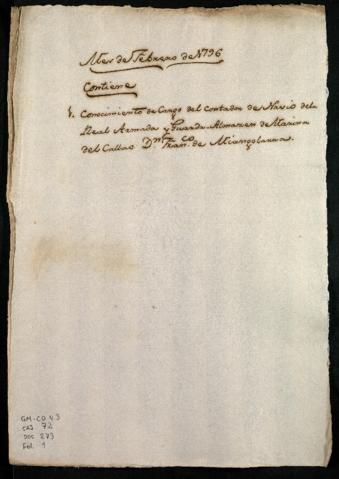 Mes de Febrero de 1796
Contiene
1. Conocimiento de Cargo del Contador de Navio de la
Real Armada y Guarda-Almazen de Marina
del Callao Dn. Franco. de Miangolarra.
GM-CO 4.3
CAJ 72
DOC 273
Fol. 1